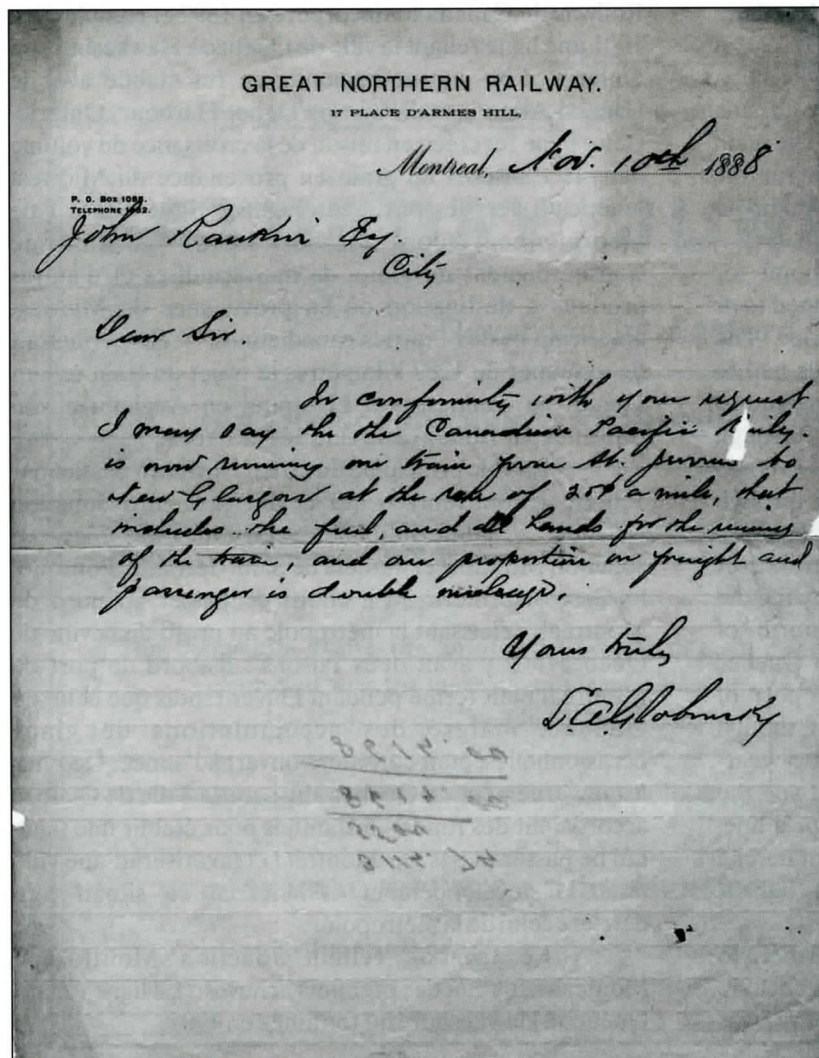 GREAT NORTHERN RAILWAY.
17 PLACE D'ARMES HILL,
Montreal, Nov. 10th 1888
P. O. Box 1085.
TELEPHONE
John Rankin Esq.
City
Dear Sir.
In conformity with your request
I may say the the Canadian Pacific Raily.
is now running our train from St. Jerome to
New Glasgow at the rate of 20¢ a mile, that
includes the fuel, and all hands for the runing
of the train, and our proportion on freight and
passenger is double mileage.
Yours truly
Globensky